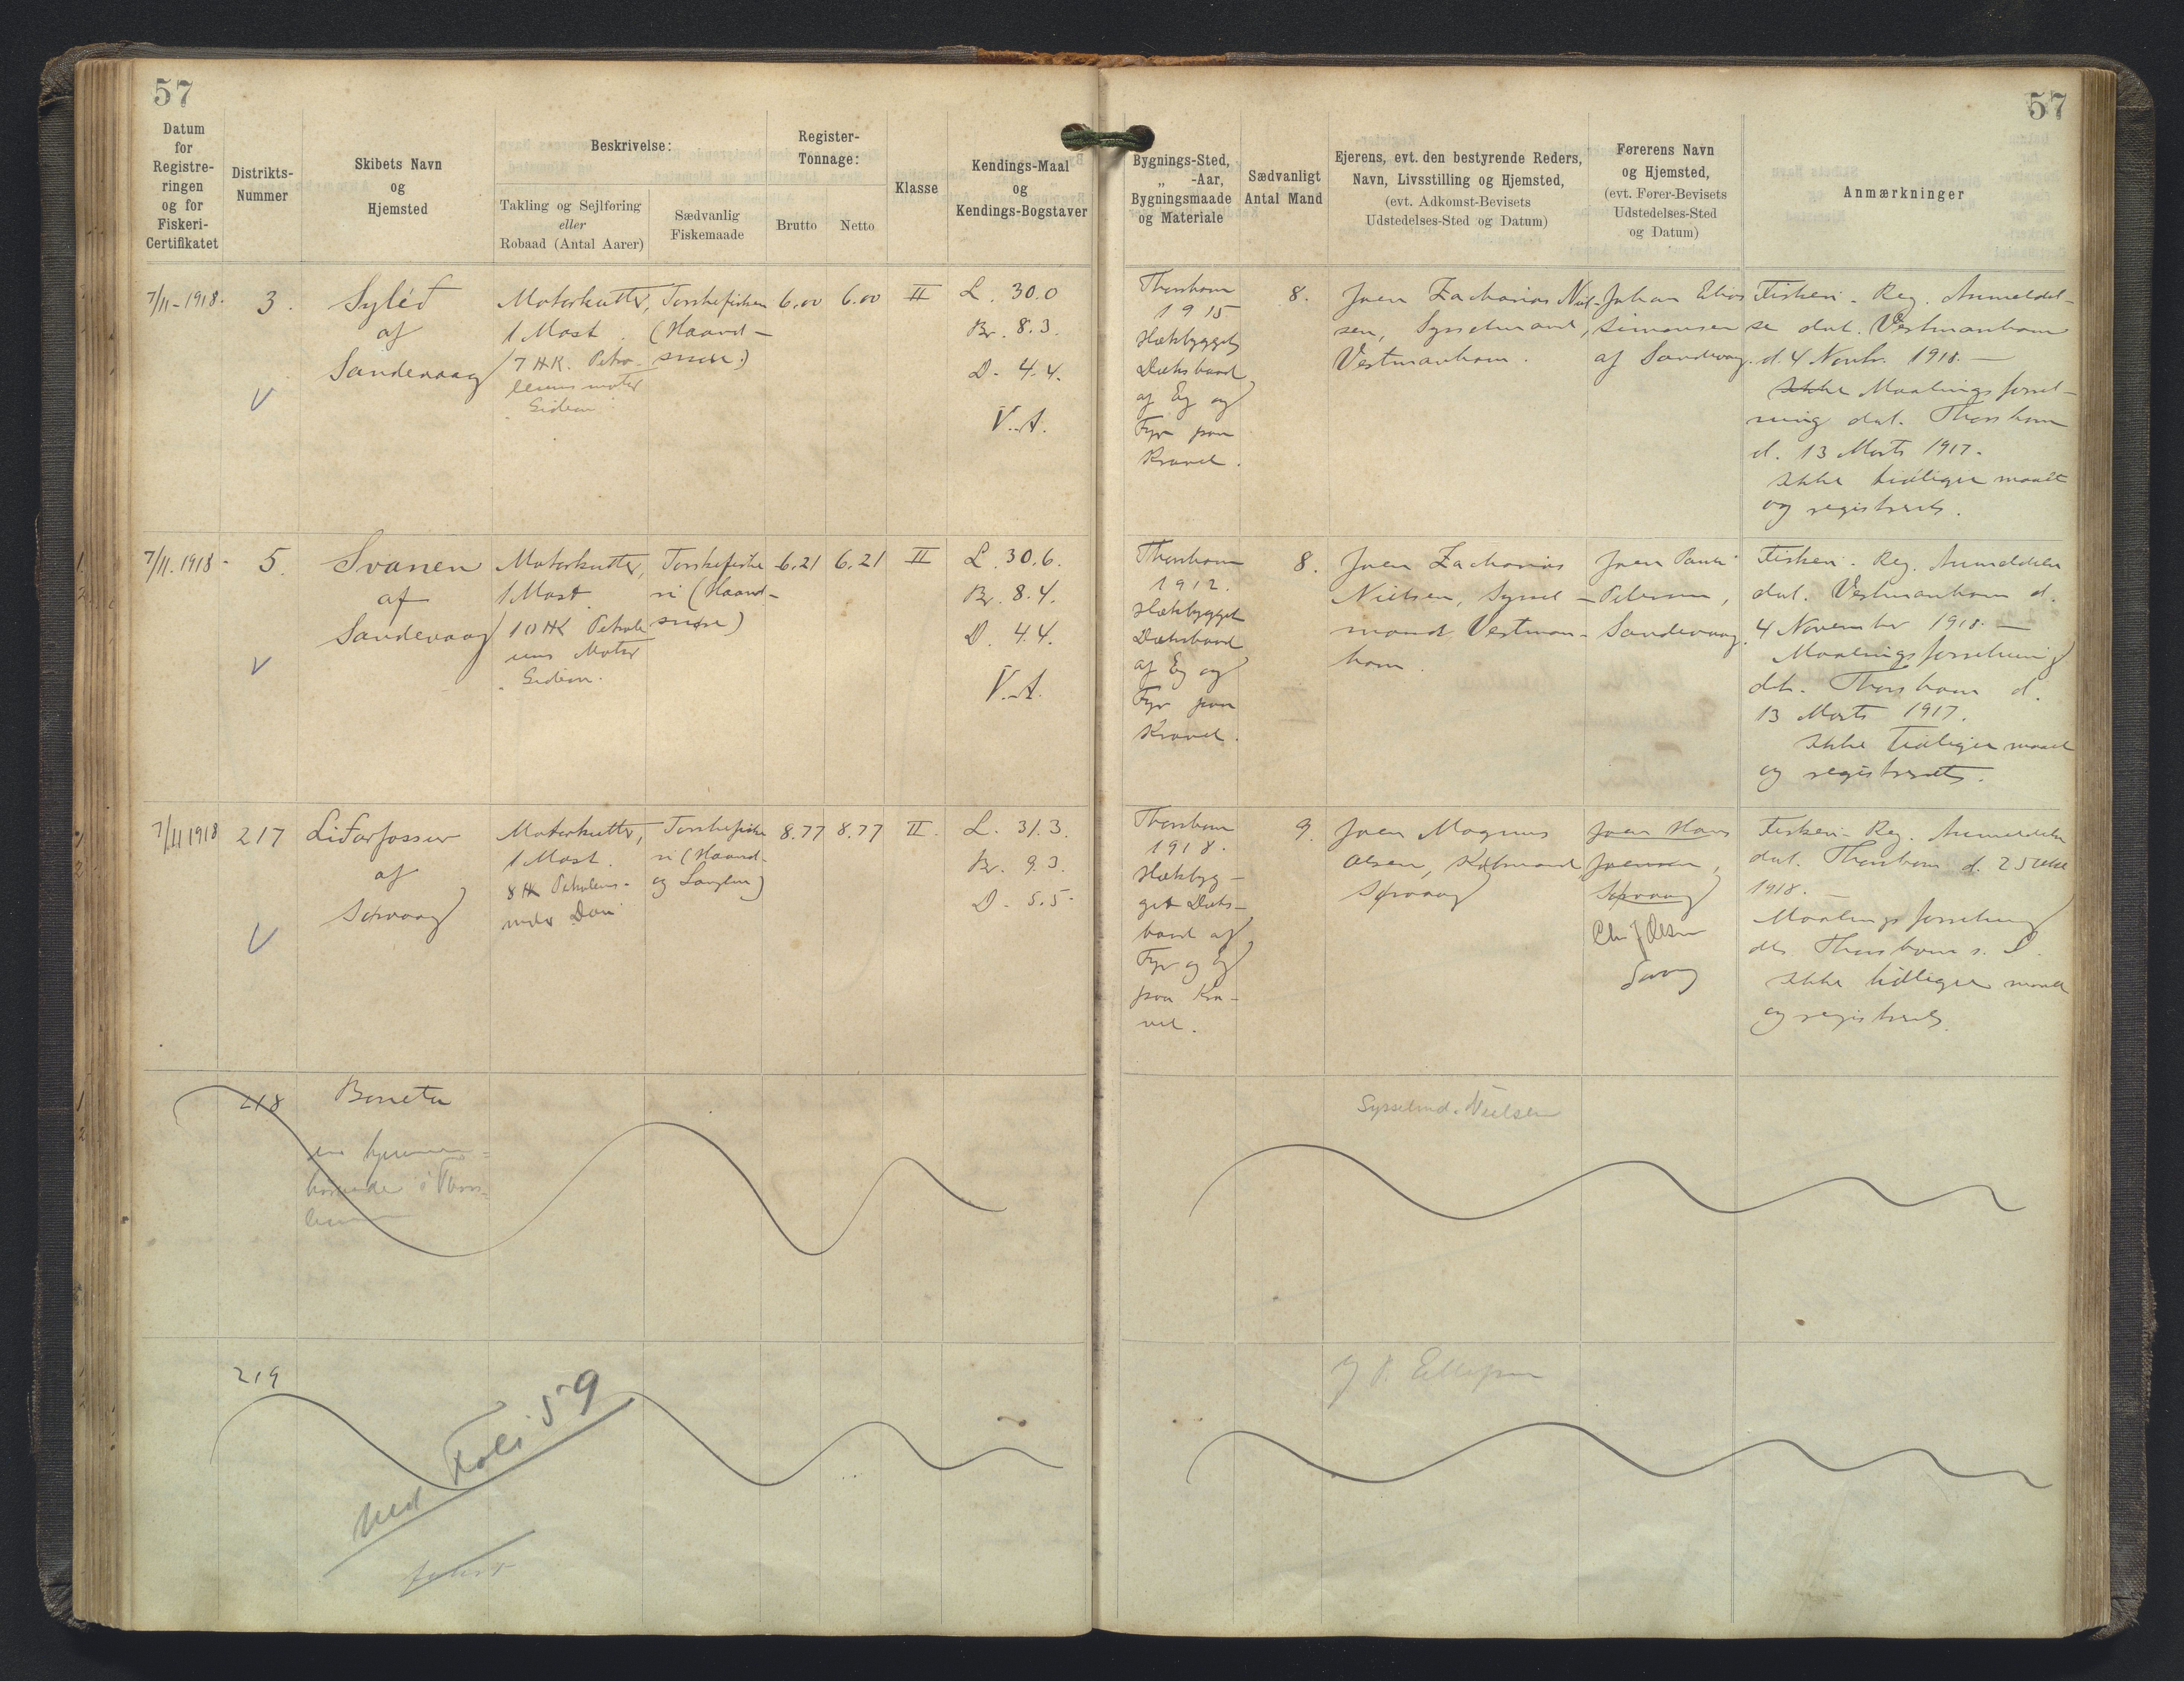 57
Datum
for
Registre-
ringen
og for
Fiskeri-
Certifikatet
Distrikts-
Nummer
Skibets Navn
og
Hjemsted
Beskrivelse:
Takling og Sejlføring
eller
Robaad (Antal Aarer)
Sædvanlig
Fiskemaade
Register-
Tonnage:
Brutto
Netto
Klasse
Kendings-Maal
og
Kendings-Bogstaver
7/11-1918.
3.
Syléd
af
Sandevaag
Motorkutter,
1 Mast.
7 HK. Petro-
leumsmotor
"Gideon"
Torskefiskeri
(Haand-
snøre)
6.00
6.00
II
L. 30.0
Br. 8.3.
D. 4.4.
V.A.
7/11.1918.
5.
Svanen
af
Sandevaag
Motorkutter,
1 Mast
10 HK Petrole
ums Motor
"Gideon".
Torskefiske
ri (Haand-
snøre)
6.21
6.21
II
L. 30.6.
Br. 8.4.
D. 4.4.
V.A.
7/11 1918
217
Lidarfossur
af
Sørvaag
Motorkutter,
1 Mast.
8 HK Petroleums-
motor "Dan"
Torskefiske
ri (Haand-
og Langline)
8.77
8.77
II.
L. 31.3.
Br. 9.3.
D. 5.5.
218
Boneta
hjemme-
hørende i Thors-
havn
219
Folio 59
57
Bygnings-Sted,
„ -Aar,
Bygningsmaade
og Materiale
Sædvanligt
Antal Mand
Ejerens, evt. den bestyrende Reders,
Navn, Livsstilling og Hjemsted,
(evt. Adkomst-Bevisets
Udstedelses-Sted og Datum)
Førerens Navn
og Hjemsted,
(evt. Fører-Bevisets
Udstedelses-Sted
og Datum)
Anmærkninger
Thorshavn
1915
Hækbygget
Dæksbaad
af Eg og
Fyr paa
Kravel.
8.
Joen Zacharias Niel-
sen, Sysselmand,
Vestmanhavn.
Johan Elias
Simonsen
af Sandevaag.
Fiskeri-Reg. Anmeldel-
se dat. Vestmanhavn
d. 4 Novbr. 1918. —
Ikke Maalingsforret-
ning dat. Thorshavn
d. 13 Marts 1917.
Ikke tidligere maalt
og registreret.
Thorshavn
1912.
Hækbygget
Dæksbaad
af Eg og
Fyr paa
Kravel.
8.
Joen Zacharias
Nielsen, Syssel-
mand, Vestman-
havn.
Joen Pauli
Petersen,
Sandevaag.
Fiskeri-Reg. Anmeldelse
dat. Vestmanhavn d.
4 November 1918. —
Maalingsforretning
dat. Thorshavn d.
13 Marts 1917.
Ikke tidligere maalt
og registreret.
Thorshavn
1918.
Hækbyg-
get Dæks-
baad af
Fyr og Eg
paa Kra-
vel.
9.
Joen Magnus
Olsen, Købmand
Sørvaag
Joen Hans
Joensen,
Sørvaag
Olsen
Fiskeri-Reg. Anmeldelse
dat. Thorshavn d. 25
1918. —
Maalingsforretning
dat. Thorshavn s. D.
Ikke tidligere maalt
og registreret.
Sysselmd. Nielsen